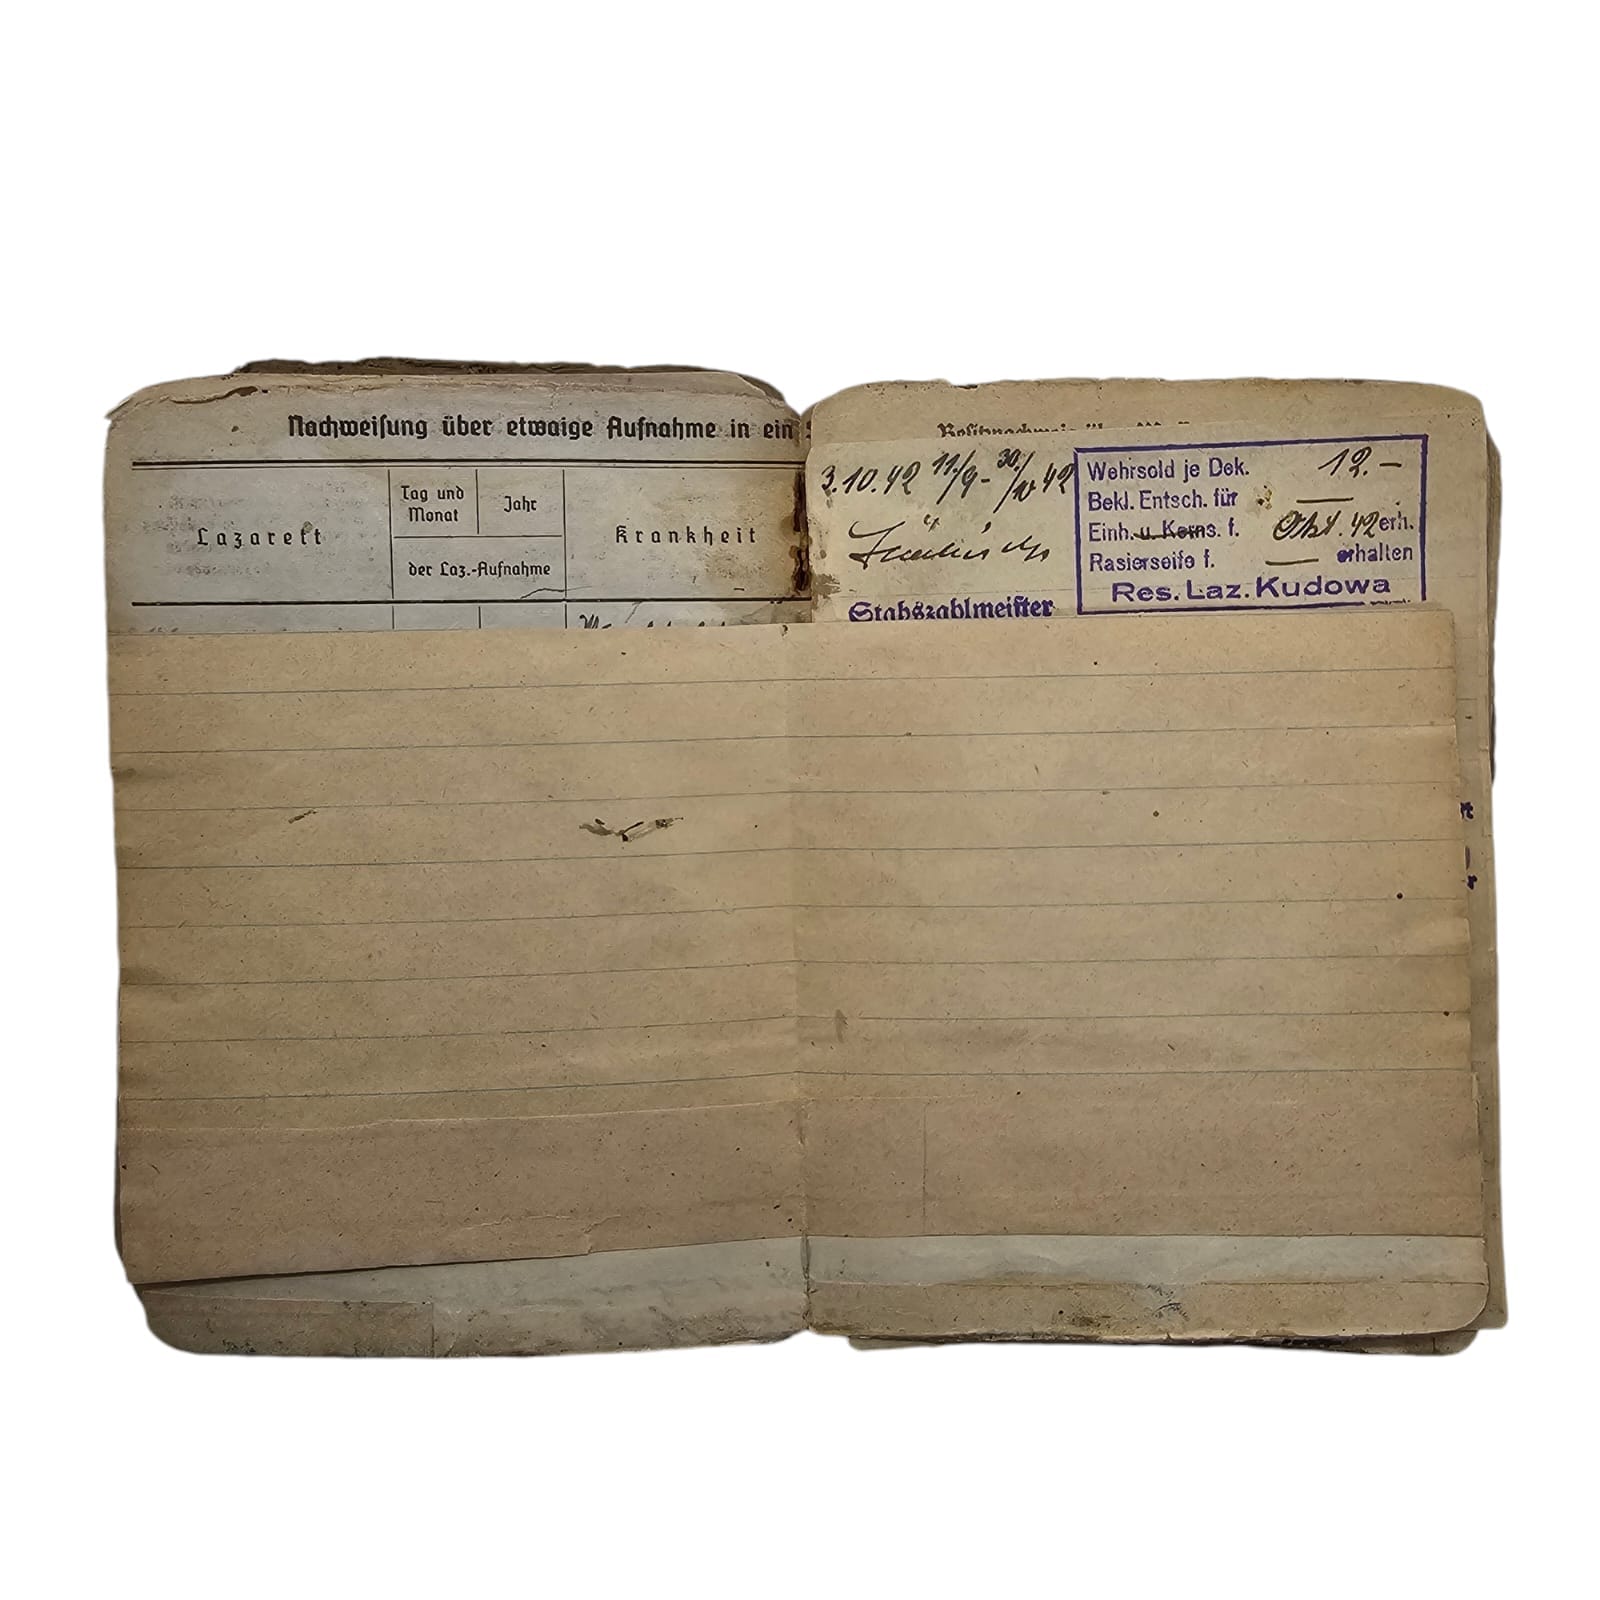 Nachweisung über etwaige Aufnahme in ein
Lazarett
Tag und
Monat
Jahr
der Laz.-Aufnahme
Krankheit
3.10.42 11./9 - 30./10 42
Stabszahlmeister
Wehrsold je Dek. 12.-
Bekl. Entsch. für —
Einh. u. Kerns. f. Okt. 42 erh.
Rasierseife f. — erhalten
Res. Laz. Kudowa